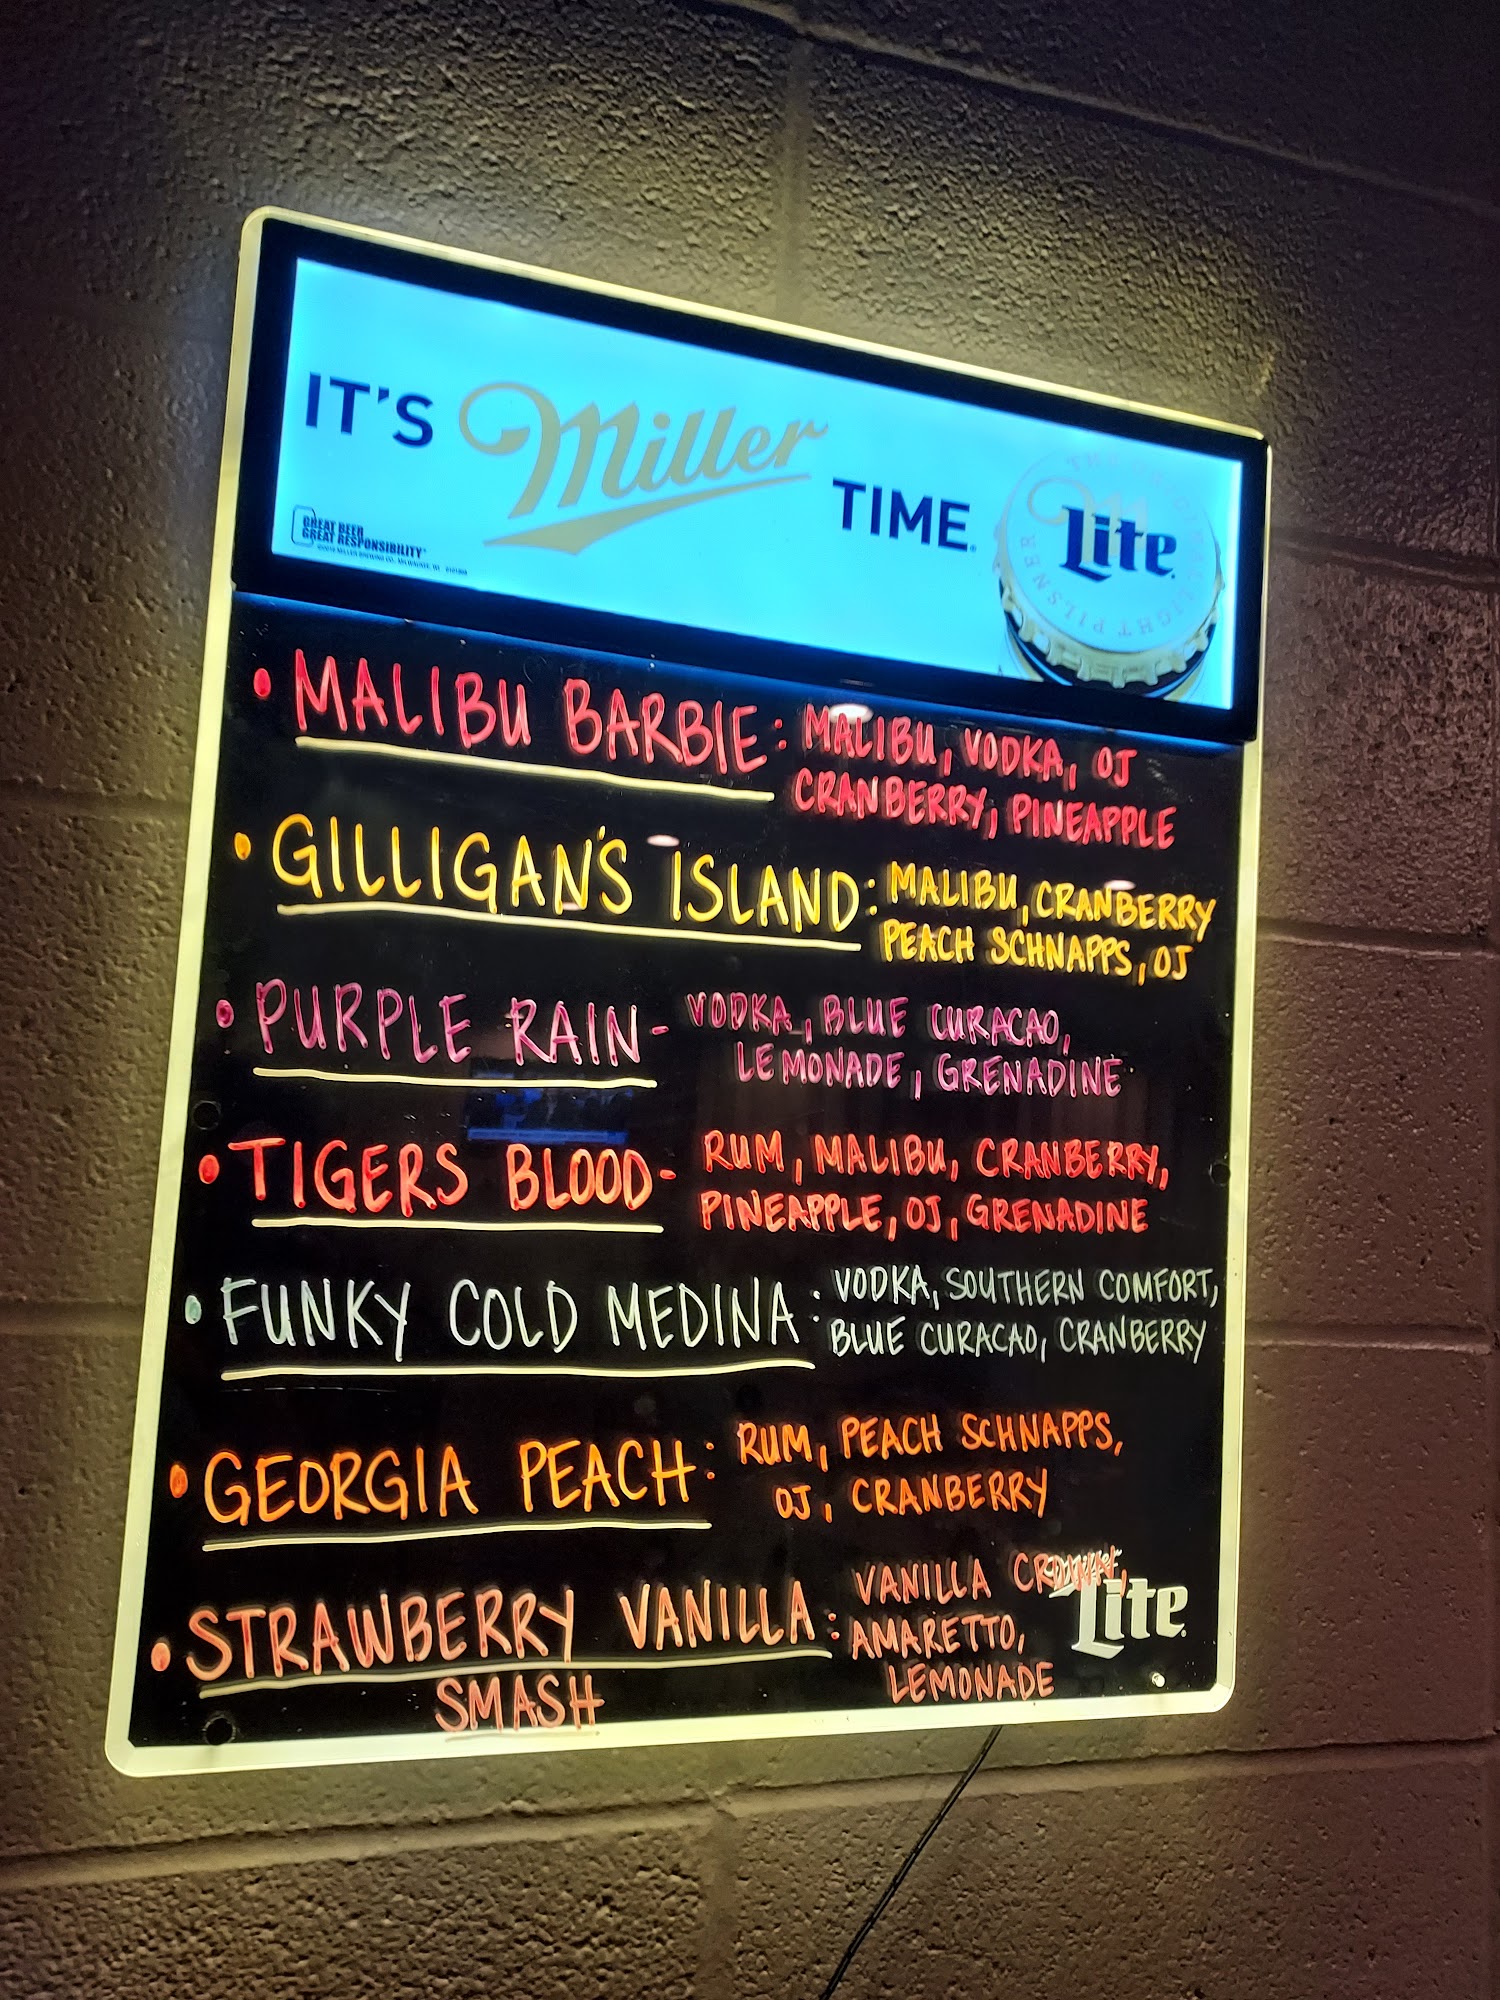 IT'S Miller TIME.
Lite
THE ORIGINAL LIGHT PILSNER
GREAT BEER
GREAT RESPONSIBILITY
• MALIBU BARBIE: MALIBU, VODKA, OJ
CRANBERRY, PINEAPPLE
• GILLIGAN'S ISLAND: MALIBU, CRANBERRY
PEACH SCHNAPPS, OJ
• PURPLE RAIN- VODKA, BLUE CURACAO,
LEMONADE, GRENADINE
• TIGERS BLOOD- RUM, MALIBU, CRANBERRY,
PINEAPPLE, OJ, GRENADINE
• FUNKY COLD MEDINA: VODKA, SOUTHERN COMFORT,
BLUE CURACAO, CRANBERRY
• GEORGIA PEACH: RUM, PEACH SCHNAPPS,
OJ, CRANBERRY
• STRAWBERRY VANILLA: VANILLA CROWN,
SMASH AMARETTO,
LEMONADE
Miller Lite